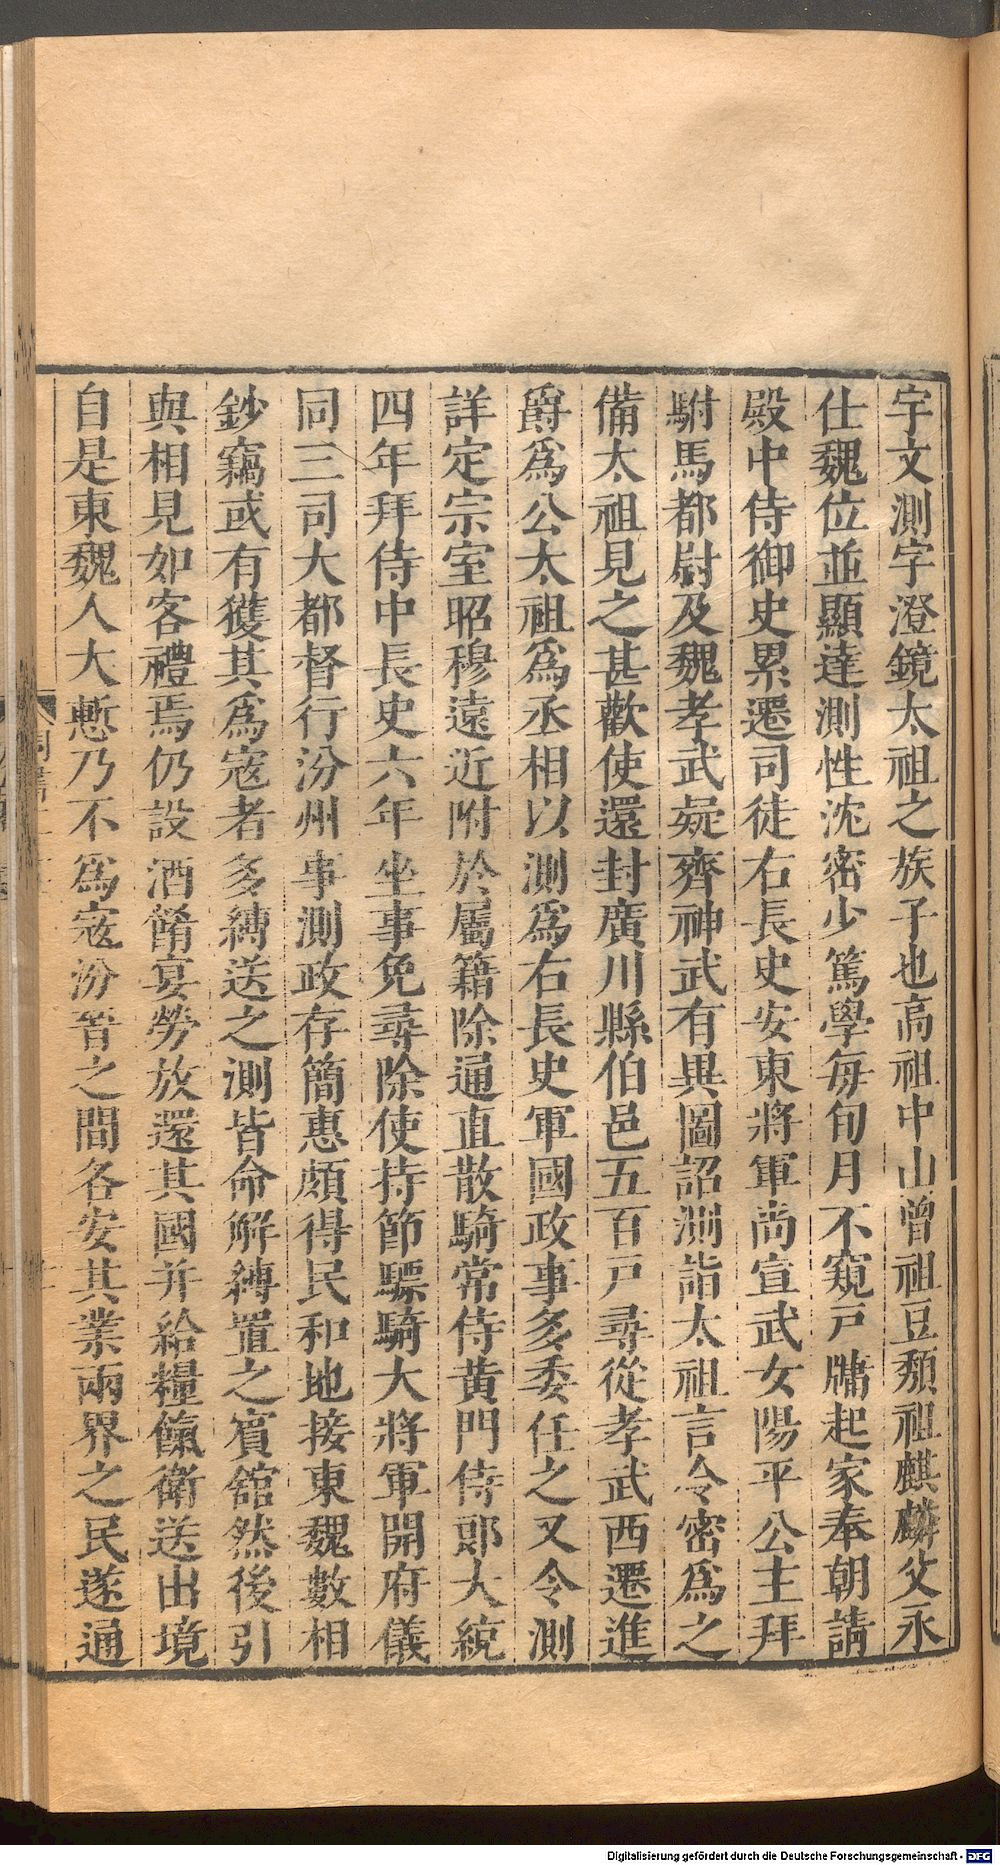 宇文測字澄鏡太祖之族子也高祖中山曾祖豆頹祖麒麟父永
仕魏位並顯達測性沈密少篤學每旬月不窺戸牗起家奉朝請
殿中侍御史累遷司徒右長史安東將軍尚宣武女陽平公主拜
駙馬都尉及魏孝武疑齊神武有異圖詔測詣太祖言令密爲之
備太祖見之甚歡使還封廣川縣伯邑五百戸尋從孝武西遷進
爵爲公太祖爲丞相以測爲右長史軍國政事多委任之又令測
詳定宗室昭穆遠近附於屬籍除通直散騎常侍黄門侍郎大統
四年拜侍中長史六年坐事免尋除使持節驃騎大將軍開府儀
同三司大都督行汾州事測政存簡惠頗得民和地接東魏數相
鈔竊或有獲其爲寇者多縛送之測皆命解縛置之賓舘然後引
與相見如客禮焉仍設酒餚宴勞放還其國并給糧餼衛送出境
自是東魏人大慙乃不爲寇汾晉之間各安其業兩界之民遂通
Digitalisierung gefördert durch die Deutsche Forschungsgemeinschaft - DFG